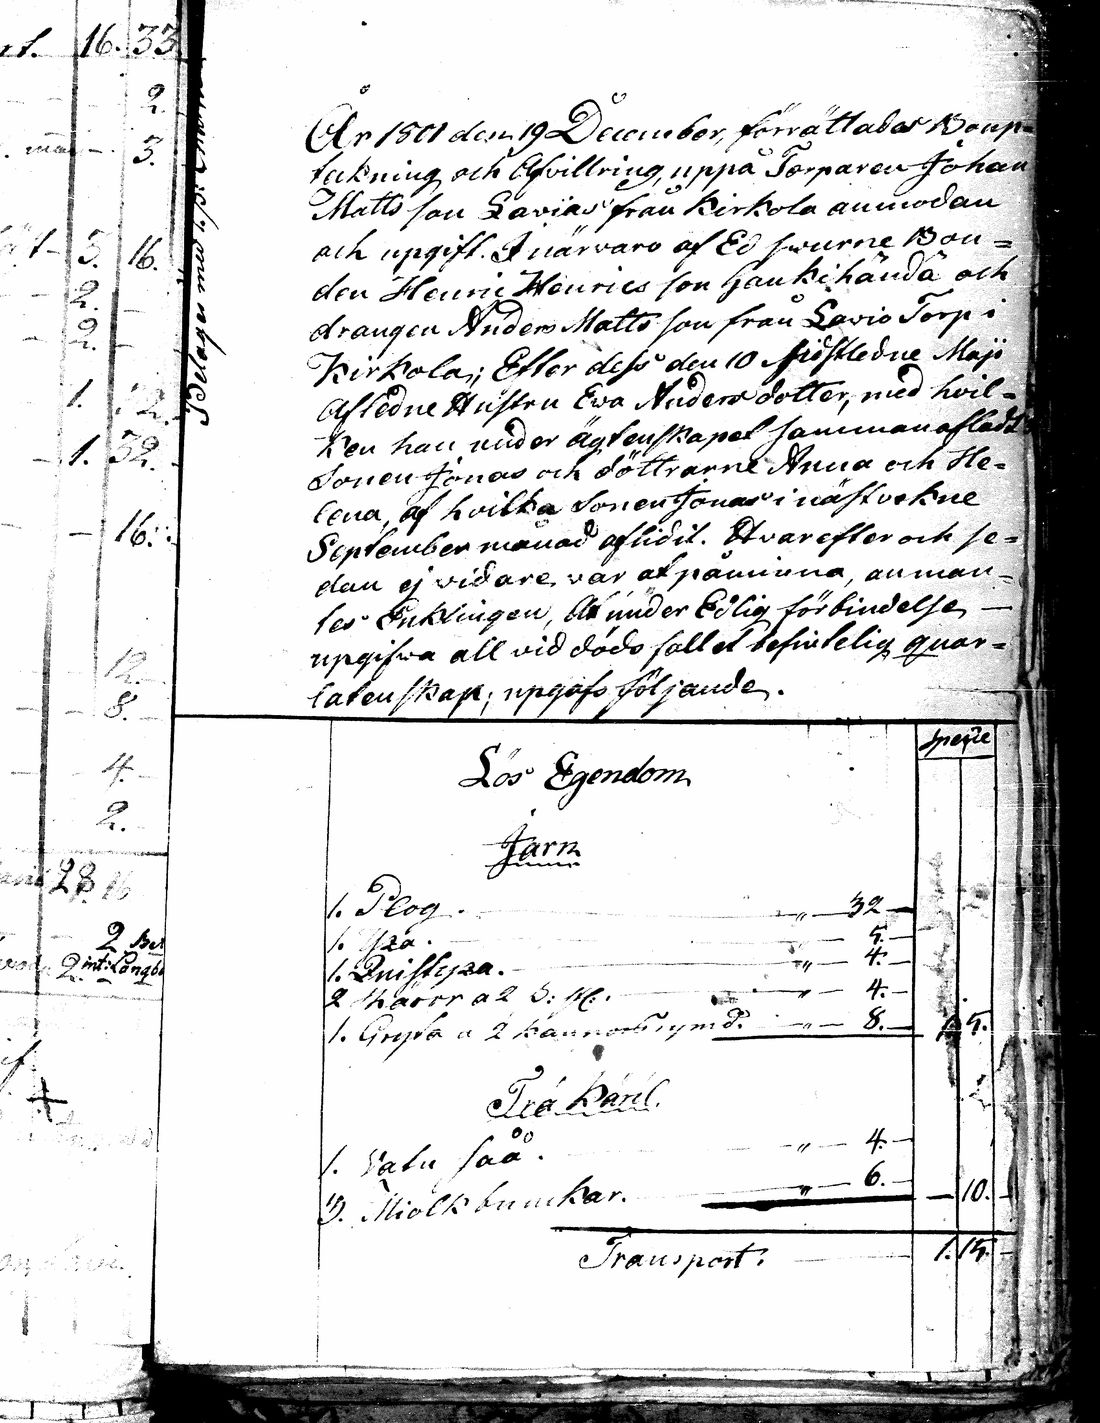 rt. 16. 33
2.
3.
5. 16.
2.
2.
1.
1. 32.
16.
12.
8.
4.
2.
28 16
2
2 int: Långb
År 1801 den 19 December, förrättades Boup=
tekning och Afvittring, uppå Torparen Johan
Matts son Lavias från Kirkola anmodan
och upgift. I närvaro af Ed swurne Bon=
den Henric Henrics son Haukihändä och
drängen Anders Matts son från Lavio Torp i
Kirkola; Efter dess den 10 sidstledne Maji
Afledne Hustru Eva Anders dotter, med hvil=
ken han under ägtenskapet sammanafladt
Sonen Jonas och döttrarne Anna och He=
lena, af hvilka Sonen Jonas i nästvekne
September månad aflidit. Hvarefter och se=
dan ej vidare var at påminna, anman=
tes Enklingen, at under Edlig förbindelse
upgifva all vid döds fallet befintelig quar=
latenskap; upgafs följande.
specie
Lös Egendom
Jarn
1. Plog. " 32
1. Yxa. 5.
1. Qvistyxa. " 4.
2 Skäror a 2 S: st: " 4.
1. Gryta a 2 kannors rymd. " 8. 1. 5.
Trä Käril.
1. Vatu såå. " 4.
3. Miolk bunkar. " 6. 10.
Transport: 1. 15.